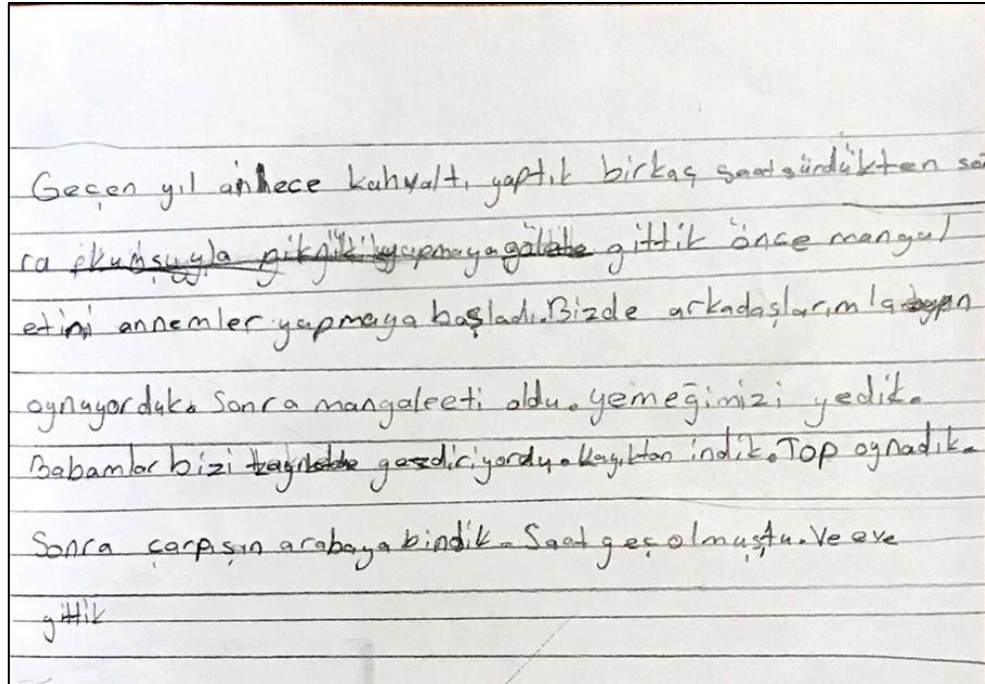 Geçen yıl ailece kahvaltı yaptık birkaç saat sürdükten so
ra pikniğk yapmaya gittik önce mangal
etini annemler yapmaya başladı. Bizde arkadaşlarımla oyun
oynuyorduk. Sonra mangaleeti oldu. yemeğimizi yedik.
Babamlar bizi gezdiriyordu. kayıktan indik. Top oynadık.
Sonra çarpışın arabaya bindik. Saat geç olmuştu. Ve eve
gittik